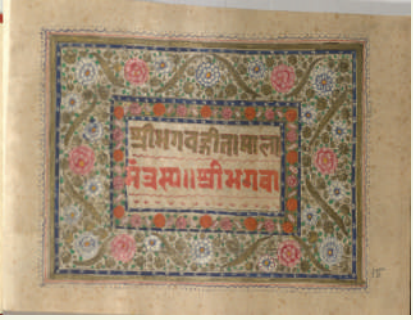 श्रीभगवद्गीतामाला
मंत्रस्य॥श्रीभगवा
15